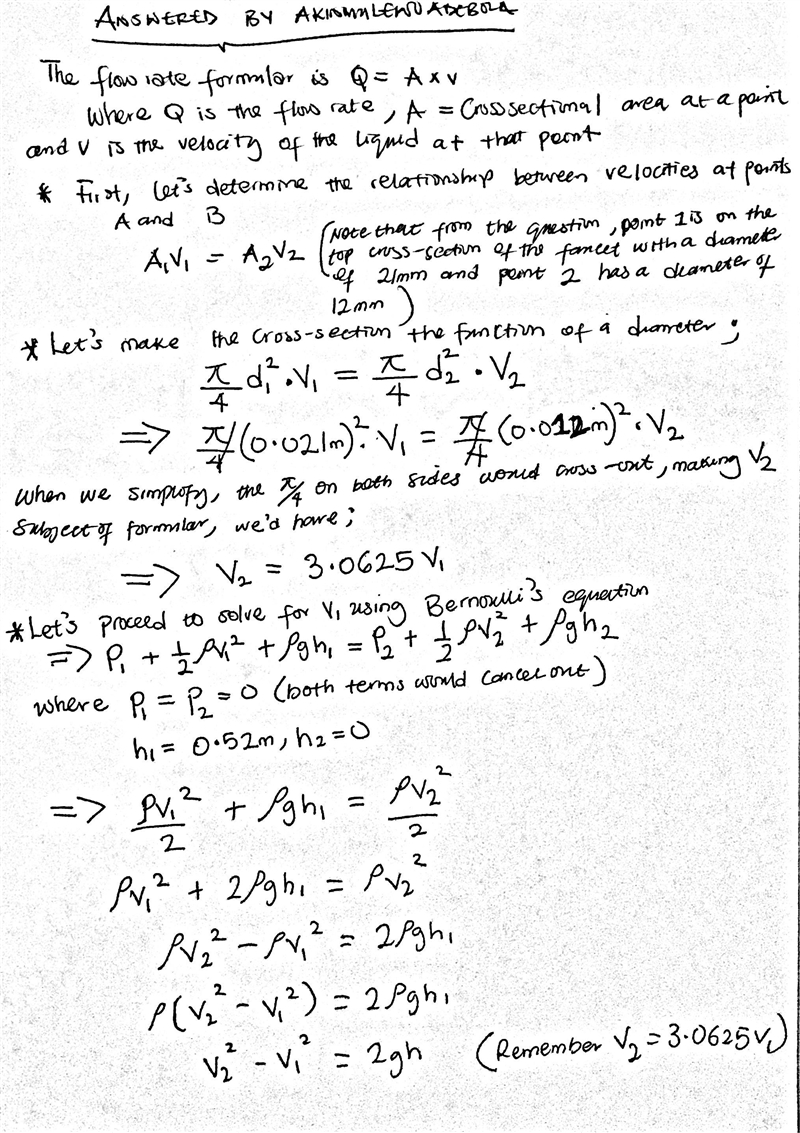 ANSWERED BY AKINMULEWO ADEBOLA
The flow rate formular is Q = A x v
Where Q is the flow rate, A = Crosssectional area at a point
and V is the velocity of the liquid at that point
* First, let's determine the relationship between velocities at points
A and B
A₁V₁ = A₂V₂ (Note that from the question, point 1 is on the
top cross-section of the faucet with a diameter
of 21mm and point 2 has a diameter of
12mm)
* Let's make the cross-section the function of a diameter;
π/4 d₁² · V₁ = π/4 d₂² · V₂
=> π/4 (0.021m)² · V₁ = π/4 (0.012m)² · V₂
When we simplify, the π/4 on both sides would cross-out, making V₂
Subject of formular, we'd have;
=> V₂ = 3.0625 V₁
* Let's proceed to solve for V₁ using Bernoulli's equation
=> P₁ + 1/2 ρv₁² + ρgh₁ = P₂ + 1/2 ρv₂² + ρgh₂
where P₁ = P₂ = 0 (both terms would cancel out)
h₁ = 0.52m, h₂ = 0
=> ρv₁²/2 + ρgh₁ = ρv₂²/2
ρv₁² + 2ρgh₁ = ρv₂²
ρv₂² - ρv₁² = 2ρgh₁
ρ(v₂² - v₁²) = 2ρgh₁
v₂² - v₁² = 2gh (Remember V₂ = 3.0625V₁)